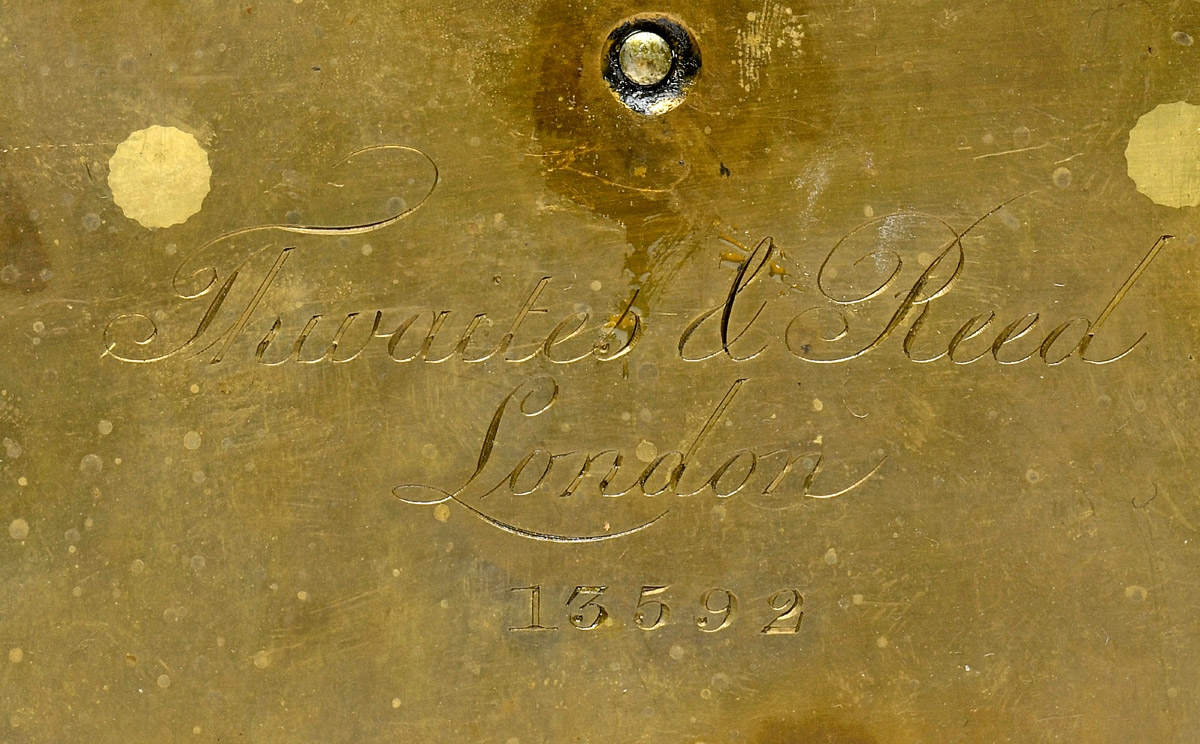 Thwaites & Reed
London
13592